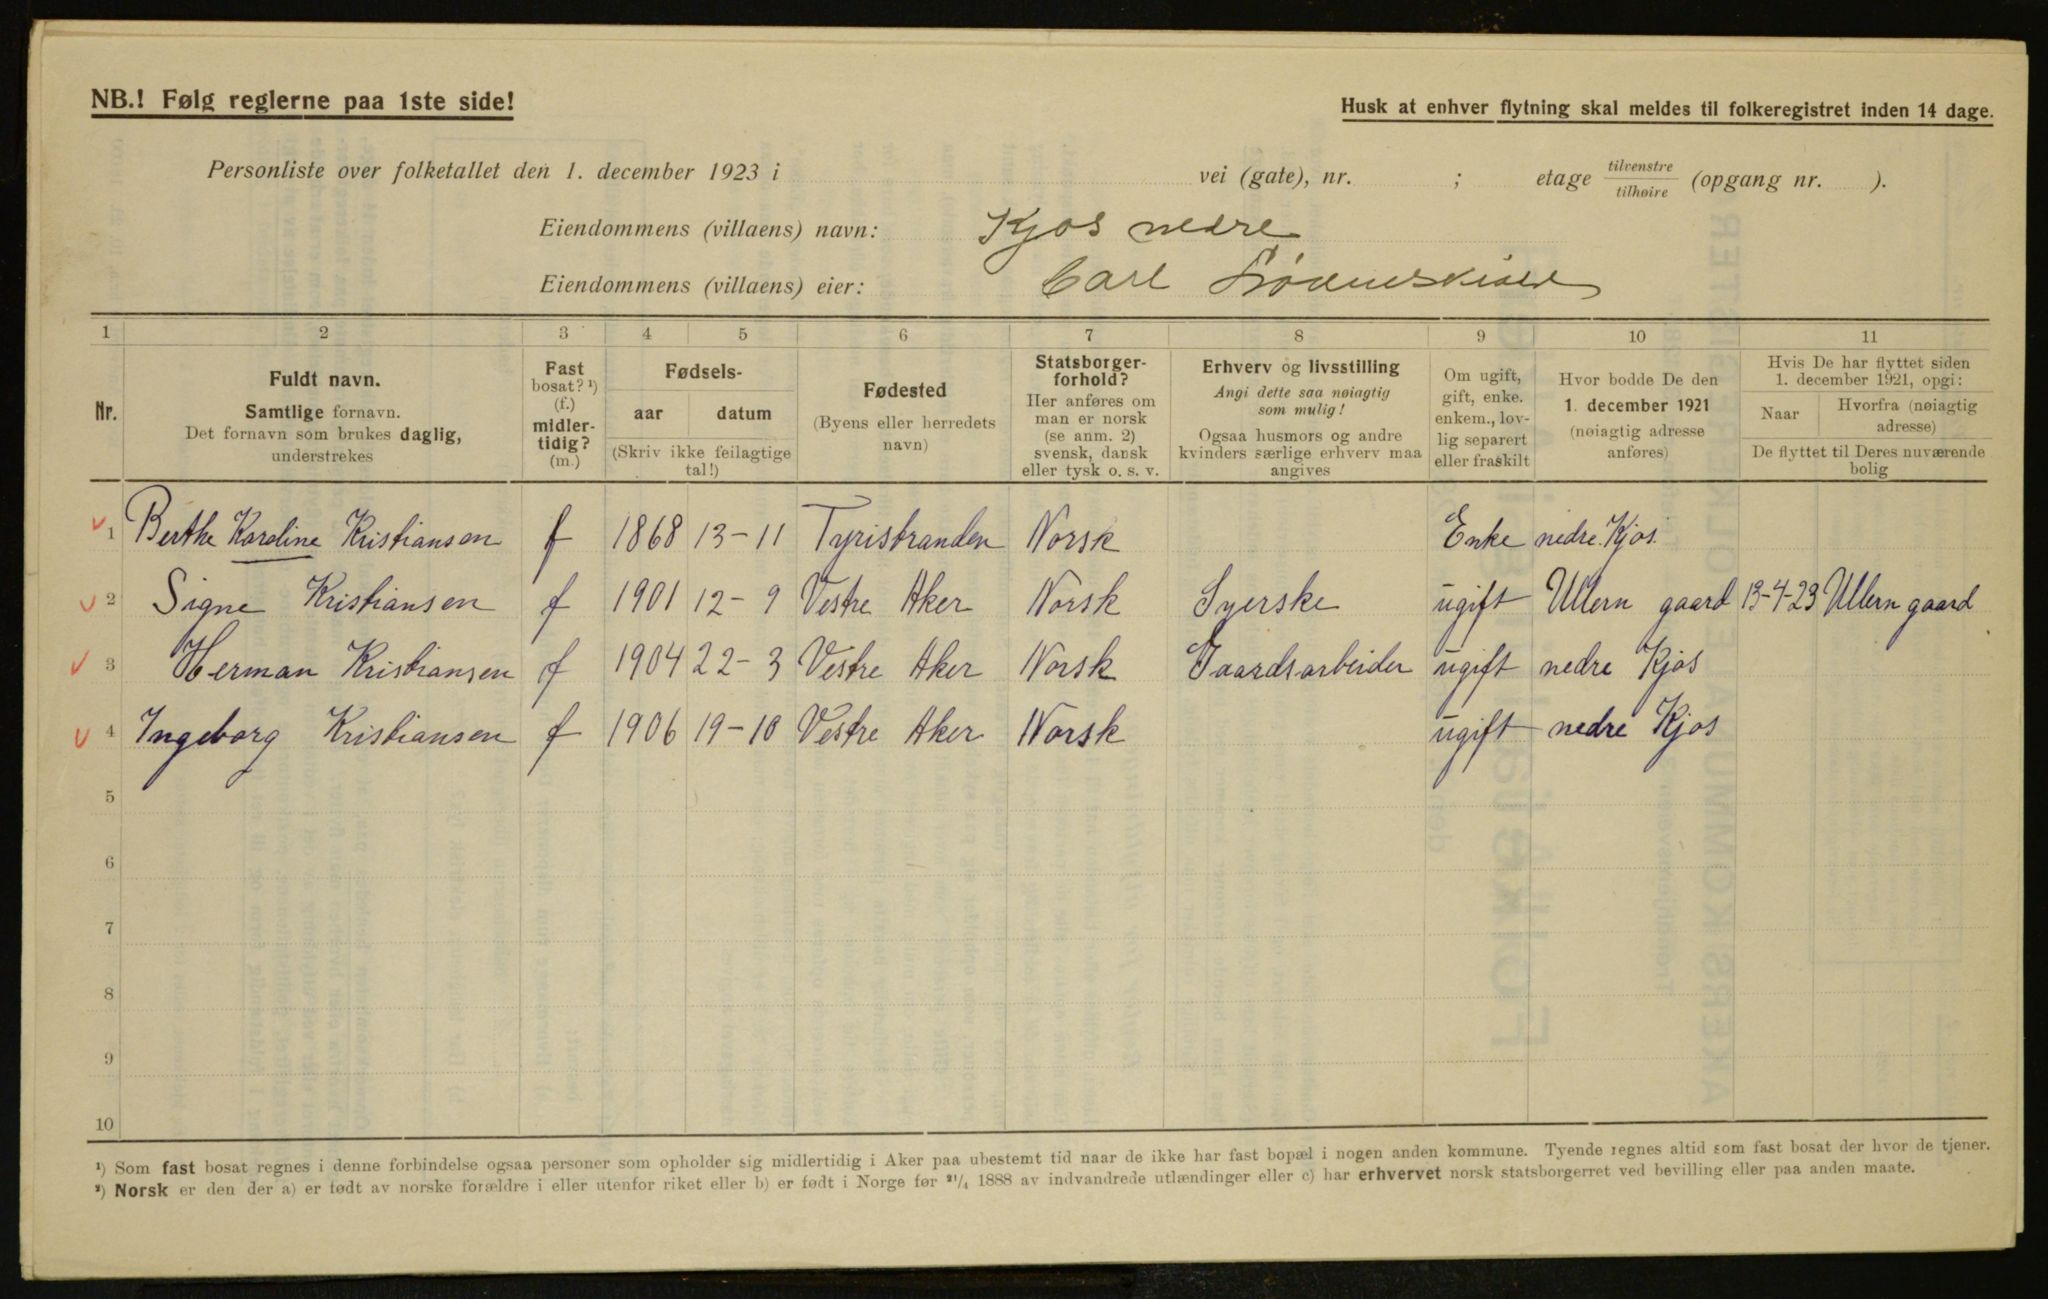 NB.! Følg reglerne paa 1ste side!
Husk at enhver flytning skal meldes til folkeregistret inden 14 dage.
Personliste over folketallet den 1. december 1923 i vei (gate), nr. ; etage tilvenstre tilhøire (opgang nr. ).
Eiendommens (villaens) navn: Kjos nedre
Eiendommens (villaens) eier: Carl Løvenskiold
1 2 3 4 5 6 7 8 9 10 11
Nr.
Fuldt navn.
Samtlige fornavn.
Det fornavn som brukes daglig,
understrekes
Fast
bosat? ¹)
(f.)
midler-
tidig?
(m.)
Fødsels-
aar datum
(Skriv ikke feilagtige
tal!)
Fødested
(Byens eller herredets
navn)
Statsborger-
forhold?
Her anføres om
man er norsk
(se anm. 2)
svensk, dansk
eller tysk o. s. v.
Erhverv og livsstilling
Angi dette saa nøiagtig
som mulig!
Ogsaa husmors og andre
kvinders særlige erhverv maa
angives
Om ugift,
gift, enke.
enkem., lov-
lig separert
eller fraskilt
Hvor bodde De den
1. december 1921
(nøiagtig adresse
anføres)
Hvis De har flyttet siden
1. december 1921, opgi:
Naar Hvorfra (nøiagtig
adresse)
De flyttet til Deres nuværende
bolig
1 Berthe Karoline Kristiansen f 1868 13-11 Tyristranden Norsk Enke nedre Kjos.
2 Signe Kristiansen f 1901 12-9 Vestre Aker Norsk Syerske ugift Ullern gaard 13-4-23 Ullern gaard
3 Herman Kristiansen f 1904 22-3 Vestre Aker Norsk Gaardsarbeider ugift nedre Kjos
4 Ingeborg Kristiansen f 1906 19-10 Vestre Aker Norsk ugift nedre Kjos
5
6
7
8
9
10
¹) Som fast bosat regnes i denne forbindelse ogsaa personer som opholder sig midlertidig i Aker paa ubestemt tid naar de ikke har fast bopæl i nogen anden kommune. Tyende regnes altid som fast bosat der hvor de tjener.
²) Norsk er den der a) er født av norske forældre i eller utenfor riket eller b) er født i Norge før ²¹/₄ 1888 av indvandrede utlændinger eller c) har erhvervet norsk statsborgerret ved bevilling eller paa anden maate.